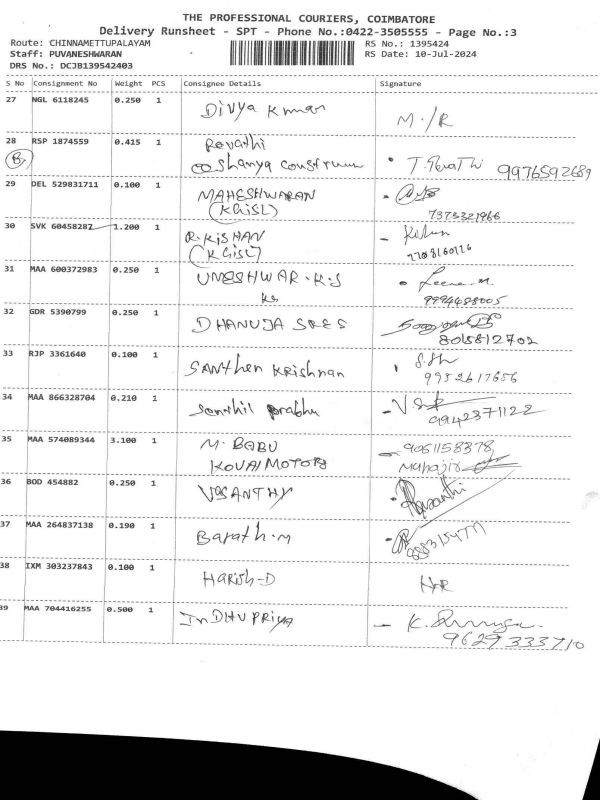 THE PROFESSIONAL COURIERS, COIMBATORE
Delivery Runsheet - SPT - Phone No.:0422-3505555 - Page No.:3
Route: CHINNAMETTUPALAYAM RS No.: 1395424
Staff: PUVANESHWARAN RS Date: 10-Jul-2024
DRS No.: DCJB139542403
S No Consignment No Weight PCS Consignee Details Signature
27 NGL 6118245 0.250 1 Divya Kumar M./R
28 RSP 1874559 0.415 1 Revathi
B Shanya 9976592689
29 DEL 529831711 0.100 1 MAHESHWARAN
(KGiSL) 7373321966
30 SVK 60458287 1.200 1 R.KISHAN
(KGiSL) 7708160776
31 MAA 600372983 0.250 1 UMESHWAR.K.S
KS 9994488005
32 GDR 5390799 0.250 1 DHANUJA SREE
8015812702
33 RJP 3361640 0.100 1 SANthen KRishnan
9952617656
34 MAA 866328704 0.210 1 Senthil prabhu
9942371122
35 MAA 574089344 3.100 1 M.BABU 9061158378
KOVAI MOTORS
36 BOD 454882 0.250 1 VASANTHY
37 MAA 264837138 0.190 1 Barath.M
38 IXM 303237843 0.100 1 HARISH-D
39 MAA 704416255 0.500 1 InDHUPRIYA K.
9629333710